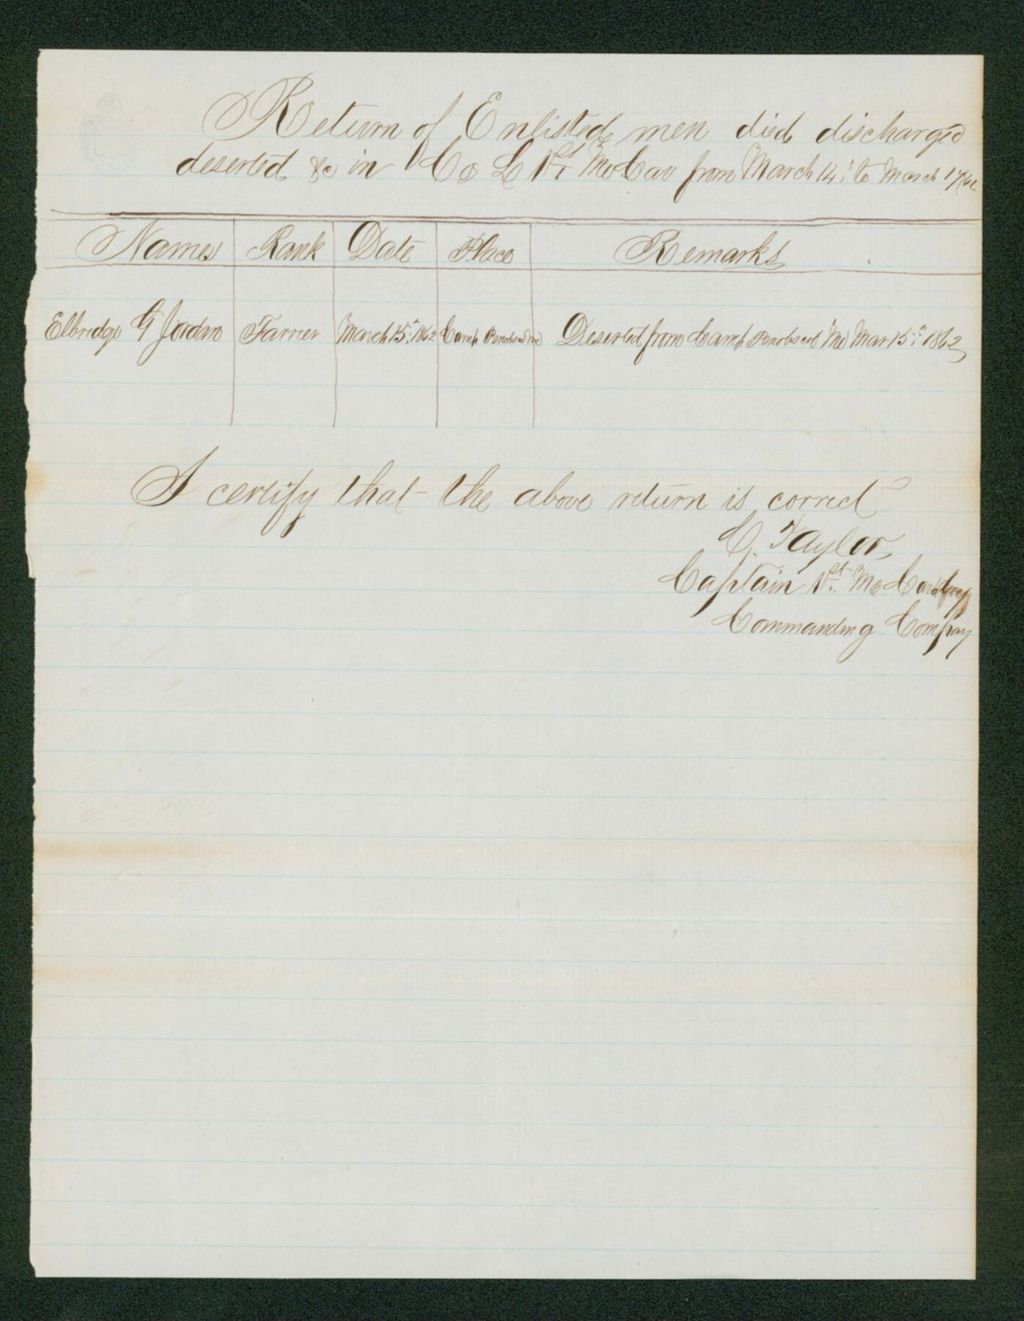 Return of Enlisted men died discharged
deserted &c in Co L 1st Me Cav from March 14" to March 17/62
Names Rank Date Place Remarks
Elbridge G Jordan Farrier March 15" 1862 Camp Penobscot Me Deserted from Camp Penobscot Me Mar 15" 1862
I certify that the above return is correct
C. Taylor,
Captain 1st Me Cavalry
Commanding Compay